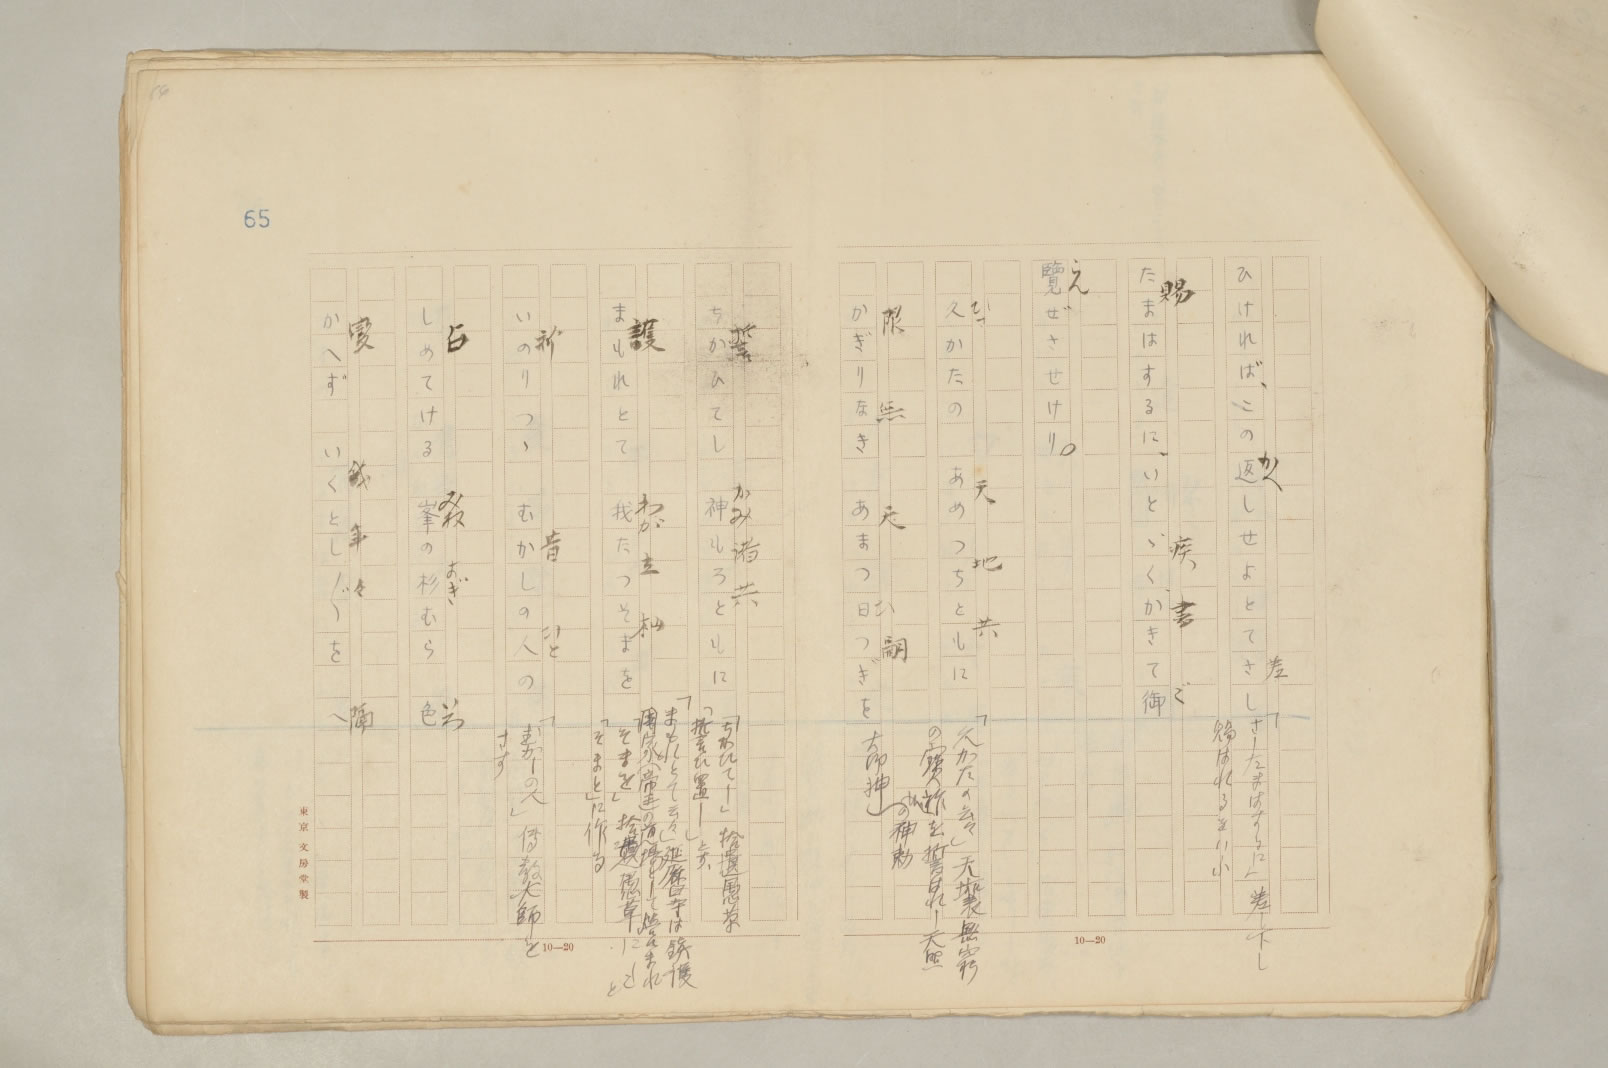 65
ひければ、この返しせよとてさし
かく 差
たまはするに、いとゞくかきて御
賜 疾 書 ご
覽ぜさせけり。
らん
久かたの あめつちともに
ひさ 天 地 共
かぎりなき あまつ日つぎを
限 無 天 ひ 嗣
ちかひてし 神もろともに
誓 かみ 諸 共
まもれとて 我たつそまを
護 わが 立 杣
いのりつゝ むかしの人の
祈 昔 ひと
しめてける 峯の杉むら 色
占 みね すぎ いろ
かへず いくとし〴〵を へ
變 幾 年 々 隔
「さしたまはするに」差下し
賜はれるをいふ
「久かたの云々」天壤無窮
の寶祚を誓はれし天照
大御神の神勅
「ちかひてし」拾遺愚草
「誓ひ置し」とす、
「まもれとて云々」延曆寺は鎭護
國家の道場として營まれ
「そまを」拾遺愚草に
「そまと」に作る
「むかしの人」傳敎大師を
さす
10—20
10—20
東京 文房堂製